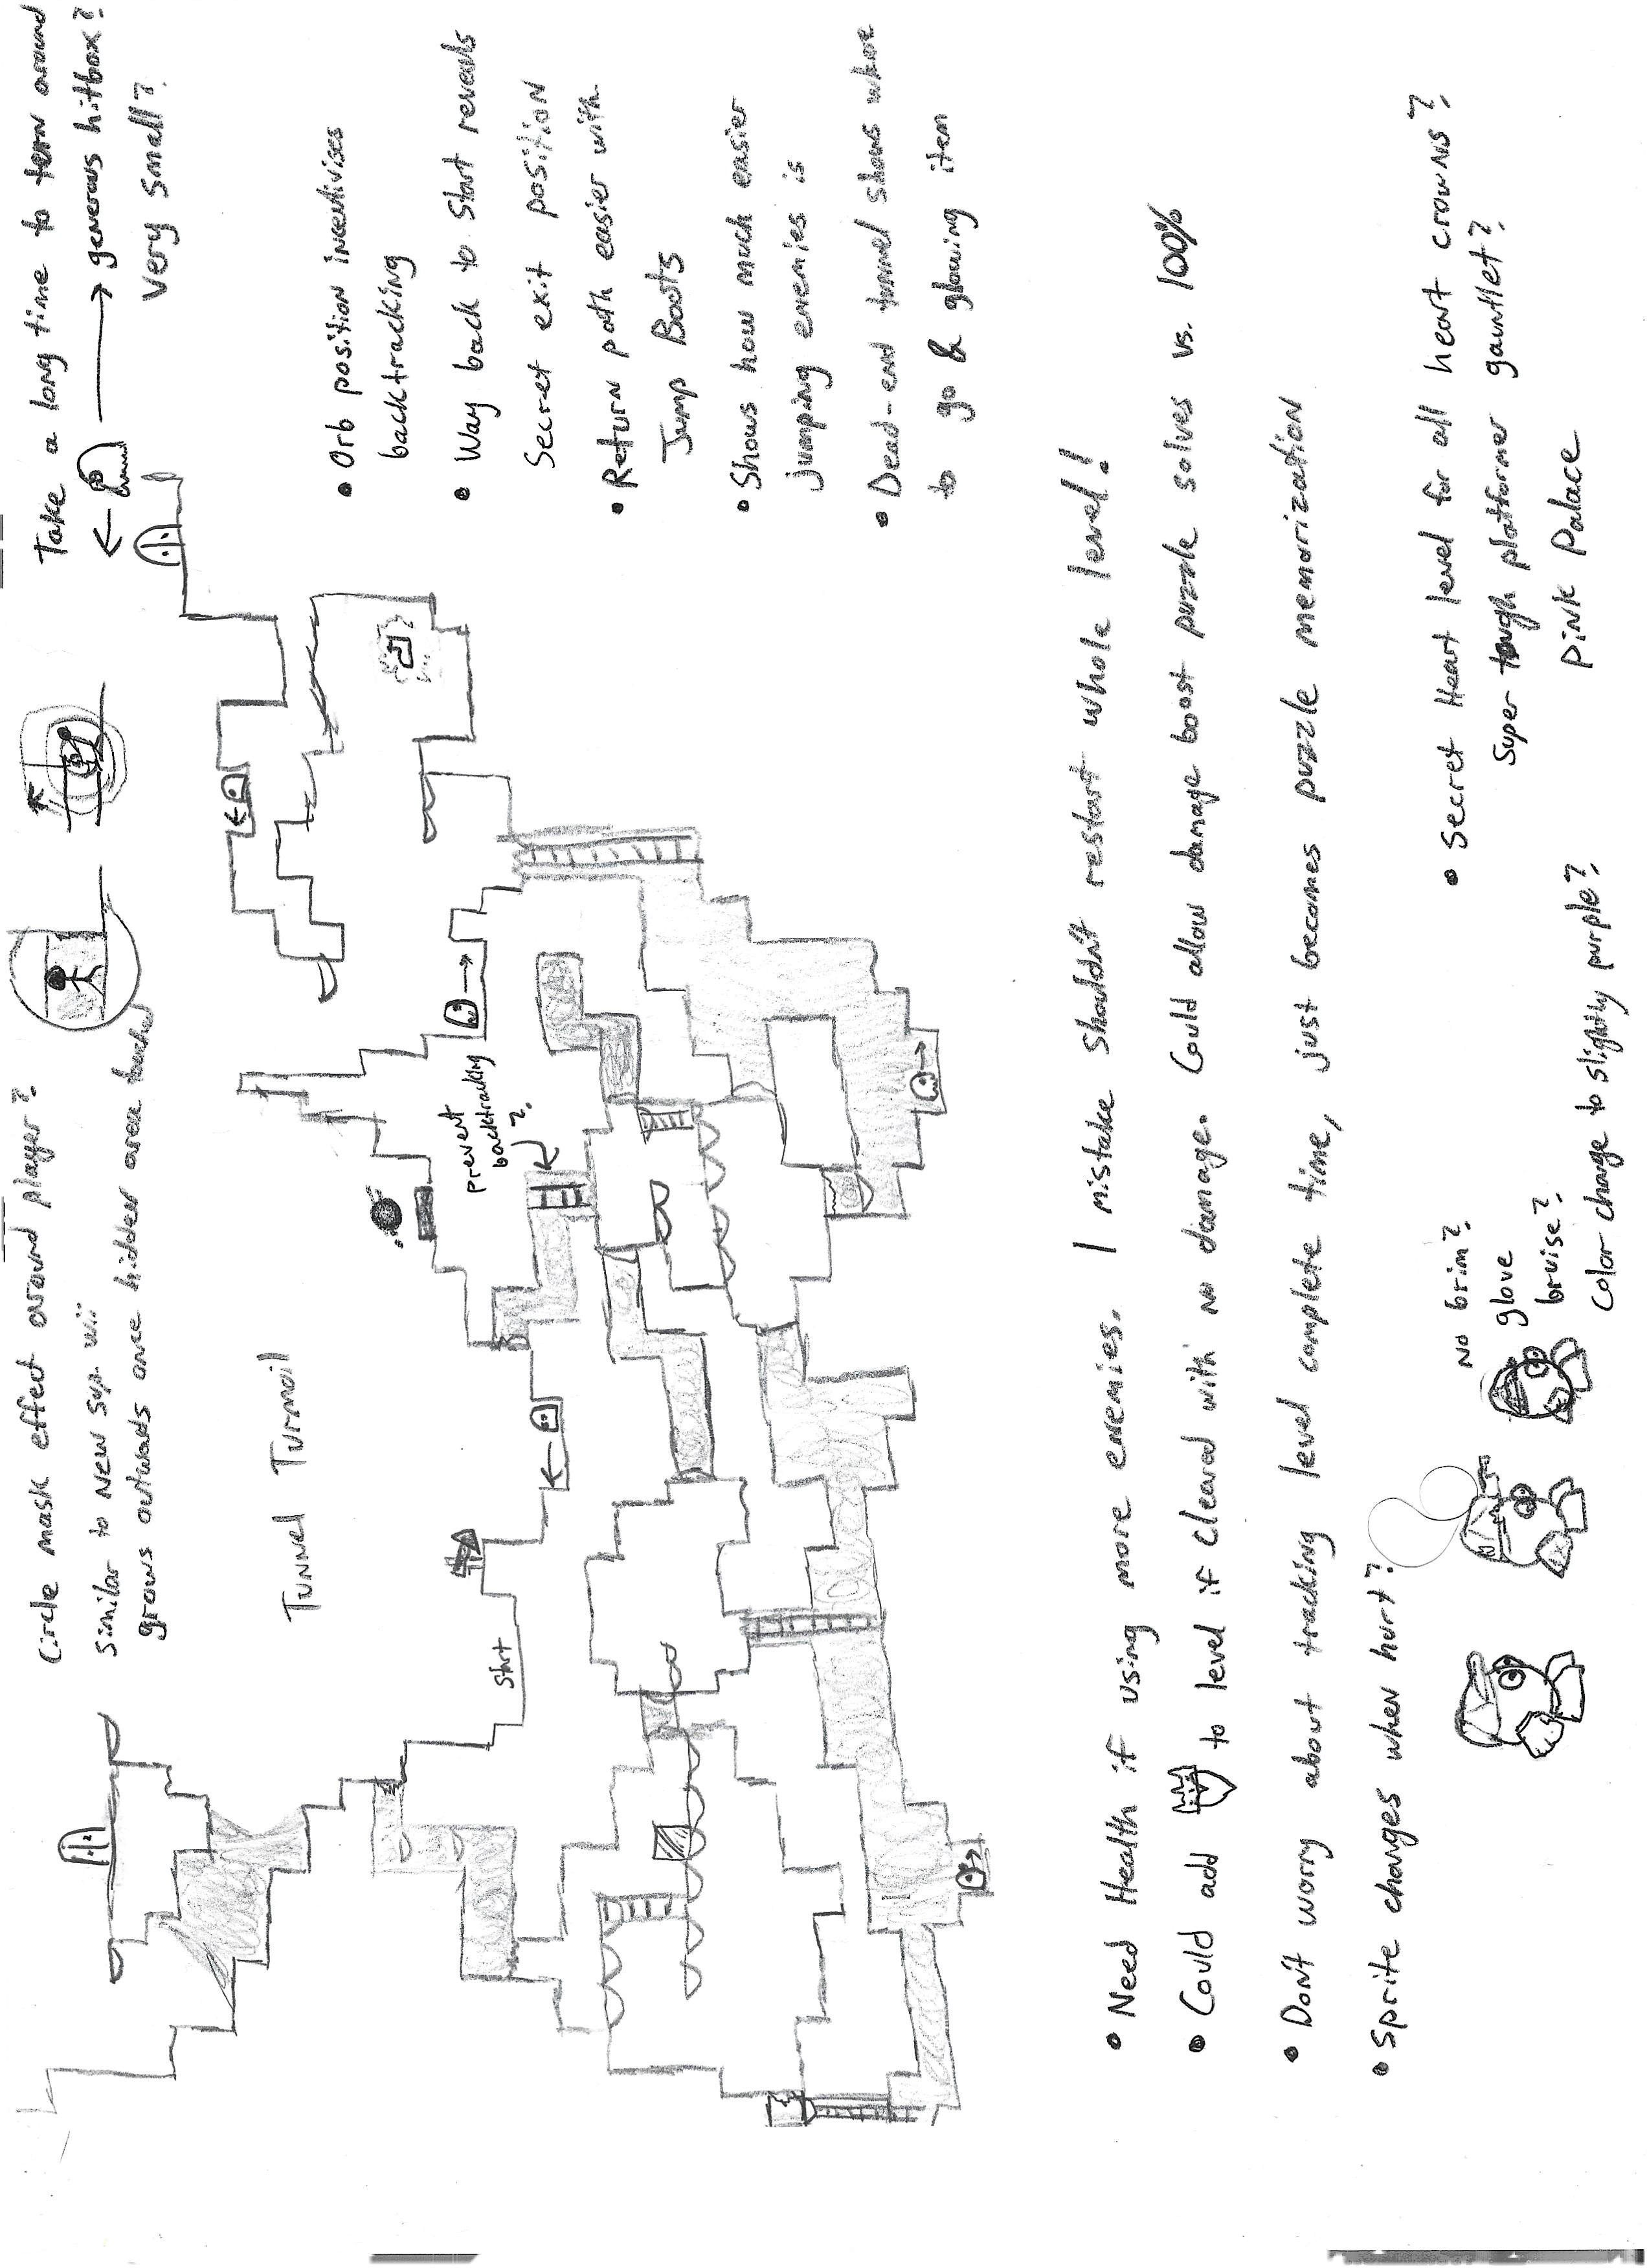 Circle mask effect around player?
Similar to New Sup. Wii
grows outwards once hidden area touched
Take a long time to turn around
generous hitbox?
Very small?
Tunnel Turmoil
Start
prevent
backtracking
?
• Orb position incentivises
backtracking
• Way back to Start reveals
Secret exit position
• Return path easier with
Jump Boots
• Shows how much easier
jumping enemies is
• Dead-end tunnel shows where
to go & glowing item
• Need Health if using more enemies. 1 mistake shouldn't restart whole level!
• Could add to level if cleared with no damage. Could allow damage boost puzzle solves vs. 100%
• Don't worry about tracking level complete time, just becomes puzzle memorization
• Sprite changes when hurt?
No brim?
glove
bruise?
Color change to slightly purple?
• Secret Heart level for all heart crowns?
Super tough platformer gauntlet?
Pink Palace